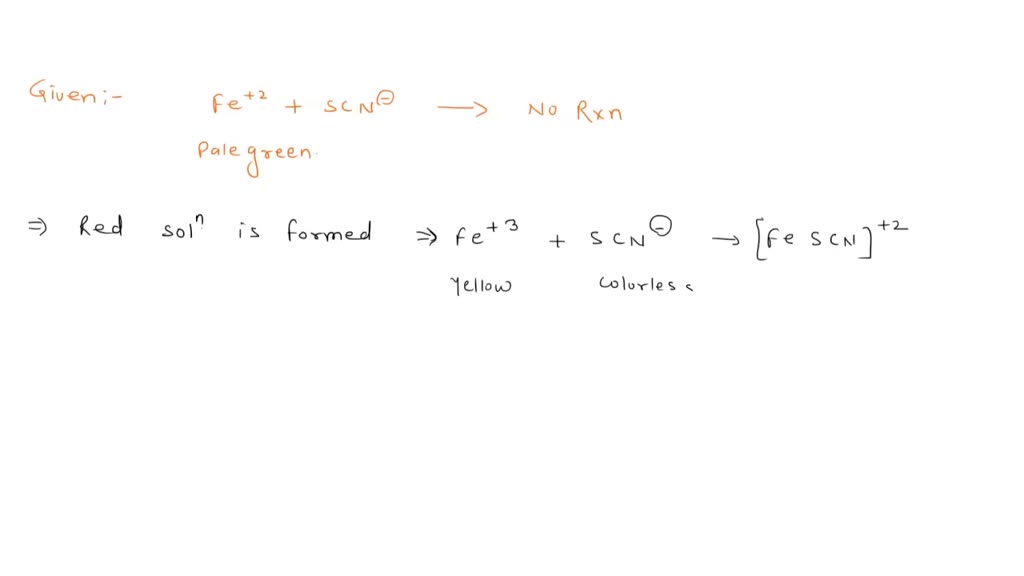 Given:- Fe⁺² + SCN⊖ → No Rxn
Pale green.
⇒ Red solⁿ is formed ⇒ Fe⁺³ + SCN⊖ → [Fe SCN]⁺²
Yellow Colorless